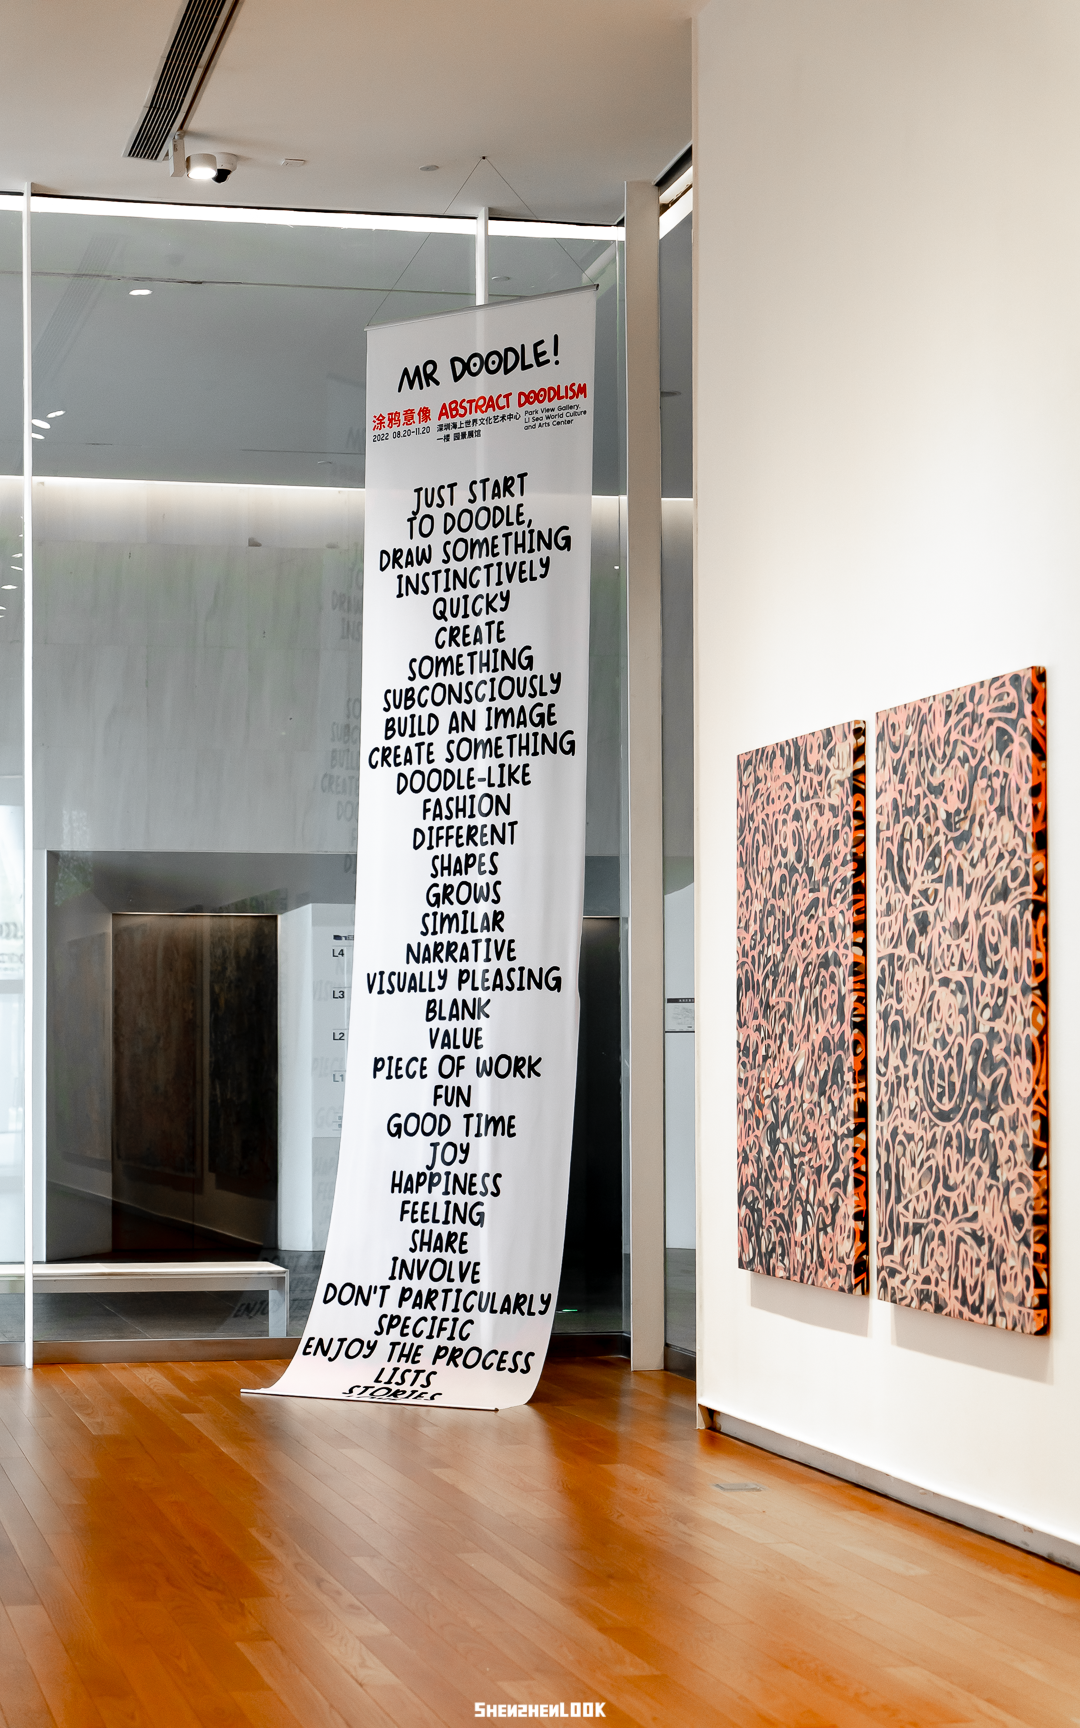 MR DOODLE!
涂鸦意像 ABSTRACT DOODLISM
2022 08.20-11.20
深圳海上世界文化艺术中心
一楼 园景展馆
Park View Gallery,
Li Sea World Culture
and Arts Center
JUST START
TO DOODLE,
DRAW SOMETHING
INSTINCTIVELY
QUICKY
CREATE
SOMETHING
SUBCONSCIOUSLY
BUILD AN IMAGE
CREATE SOMETHING
DOODLE-LIKE
FASHION
DIFFERENT
SHAPES
GROWS
SIMILAR
NARRATIVE
VISUALLY PLEASING
BLANK
VALUE
PIECE OF WORK
FUN
GOOD TIME
JOY
HAPPINESS
FEELING
SHARE
INVOLVE
DON'T PARTICULARLY
SPECIFIC
ENJOY THE PROCESS
LISTS
STORIES
L4
L3
L2
L1
SHENZHENLOOK